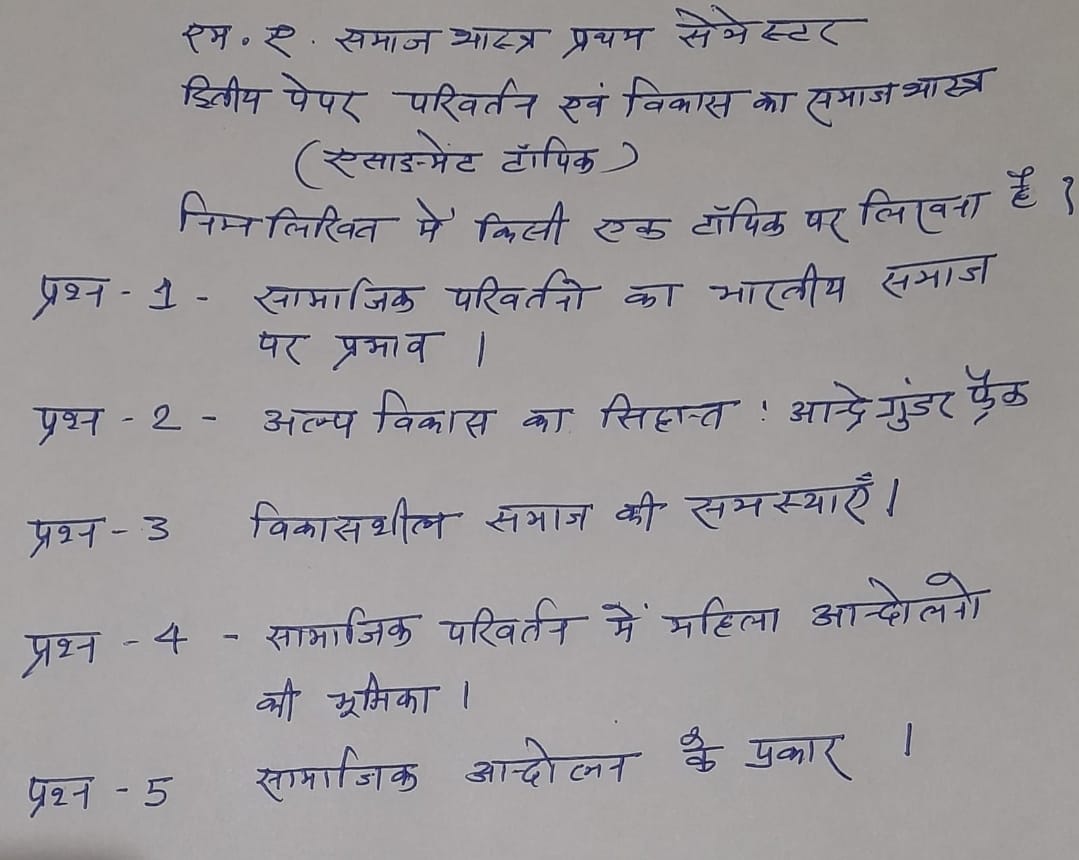 एम. ए. समाज शास्त्र प्रथम सेमेस्टर
द्वितीय पेपर परिवर्तन एवं विकास का समाज शास्त्र
(एसाइन्मेंट टॉपिक)
निम्न लिखित में किसी एक टॉपिक पर लिखना है ?
प्रश्न - 1 - सामाजिक परिवर्तनो का भारतीय समाज
पर प्रभाव ।
प्रश्न - 2 - अल्प विकास का सिद्धान्त : आन्द्रे गुंडर फ्रैंक
प्रश्न - 3 विकासशील समाज की समस्याएँ।
प्रश्न - 4 - सामाजिक परिवर्तन में महिला आन्दोलनो
की भूमिका ।
प्रश्न - 5 सामाजिक आन्दोलन के प्रकार ।